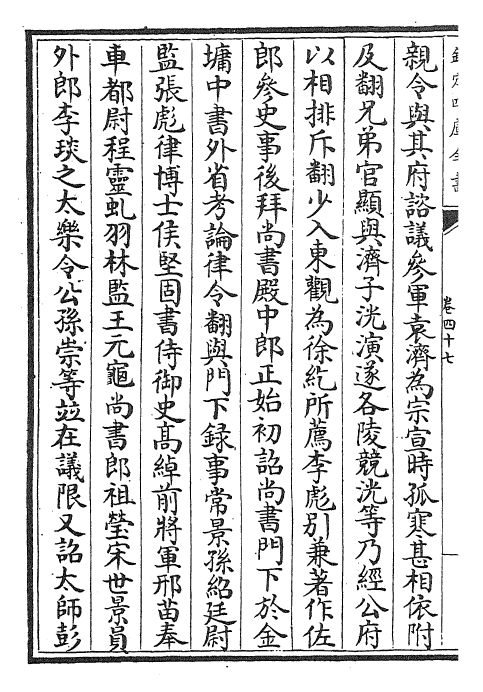 欽定四庫全書
卷四十七
親令與其府諮議參軍袁濟為宗宣時孤寒甚相依附
及翻兄弟官顯與濟子洸演遂各陵競洸等乃經公府
以相排斥翻少入東觀為徐紇所薦李彪引兼著作佐
郎參史事後拜尚書殿中郎正始初詔尚書門下於金
墉中書外省考論律令翻與門下録事常景孫紹廷尉
監張彪律博士侯堅固書侍御史髙綽前將軍邢苗奉
車都尉程靈虬羽林監王元龜尚書郎祖瑩宋世景員
外郎李琰之太樂令公孫崇等竝在議限又詔太師彭